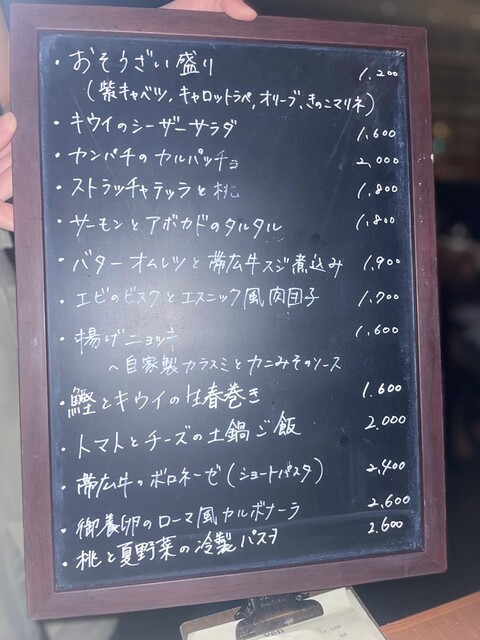 ・おそうざい盛り 1,200
(紫キャベツ、キャロットラペ、オリーブ、きのこマリネ)
・キウイのシーザーサラダ 1,600
・カンパチのカルパッチョ 2,000
・ストラッチャテッラと桃 1,800
・サーモンとアボカドのタルタル 1,800
・バターオムレツと帯広牛スジ煮込み 1,900
・エビのビスクとエスニック風肉団子 1,700
・揚げニョッキ 1,600
～自家製カラスミとカニみそのソース
・鰹とキウイの生春巻き 1,600
・トマトとチーズの土鍋ご飯 2,000
・帯広牛のボロネーゼ(ショートパスタ) 2,400
・御養卵のローマ風カルボナーラ 2,600
・桃と夏野菜の冷製パスタ 2,600